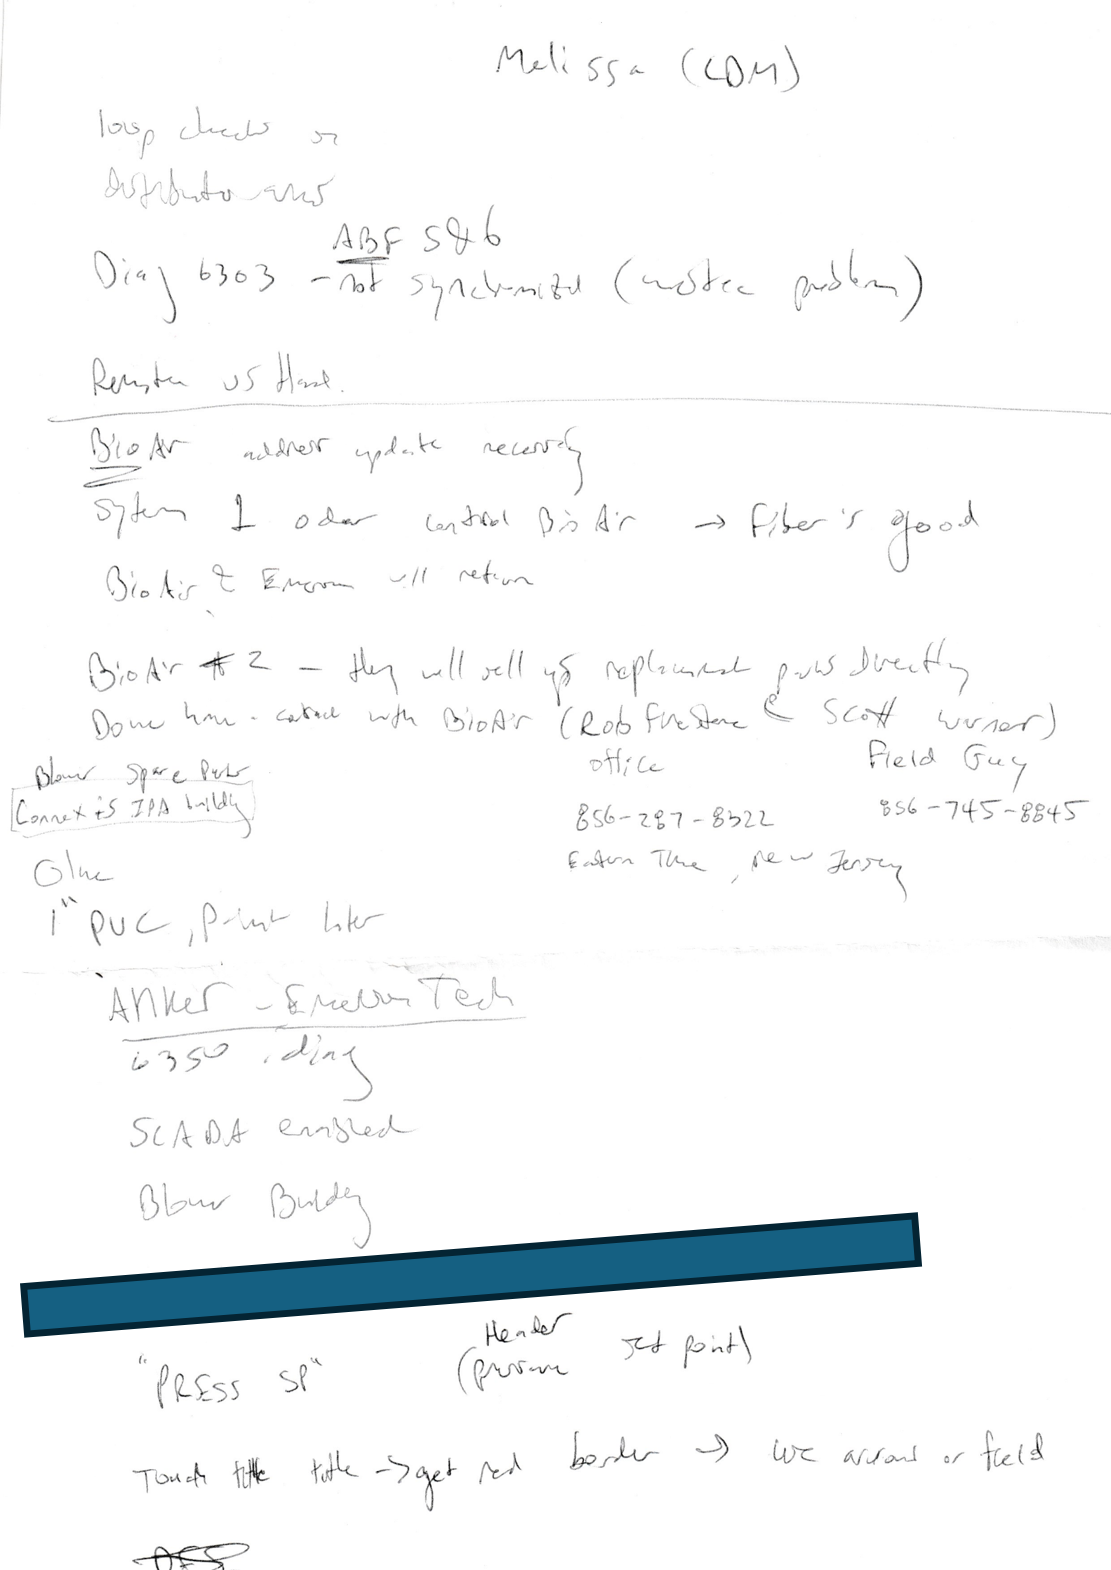 Melissa (CDM)
loop checks on
distributor arms
ABF 5&6
Diag 6303 - not synchronized (master problem)
Remote vs Hand.
BioAir address update necessary
System 1 odor control BioAir → Fiber is good
BioAir & Emerson will return
BioAir #2 - they will sell us replacement parts directly
contact with BioAir (Rob Firestone & Scott
office
Field Guy
Blower Spare Parts
Connex IPA building
856-287-8322
856-745-8845
Glue
Eastern Time, New Jersey
1" PVC, Paint later
Anker - Emerson Tech
6350 diag
SCADA enabled
Blower Building
Header
"PRESS SP" (pressure set point)
Touch title title → get red border → use arrows or field